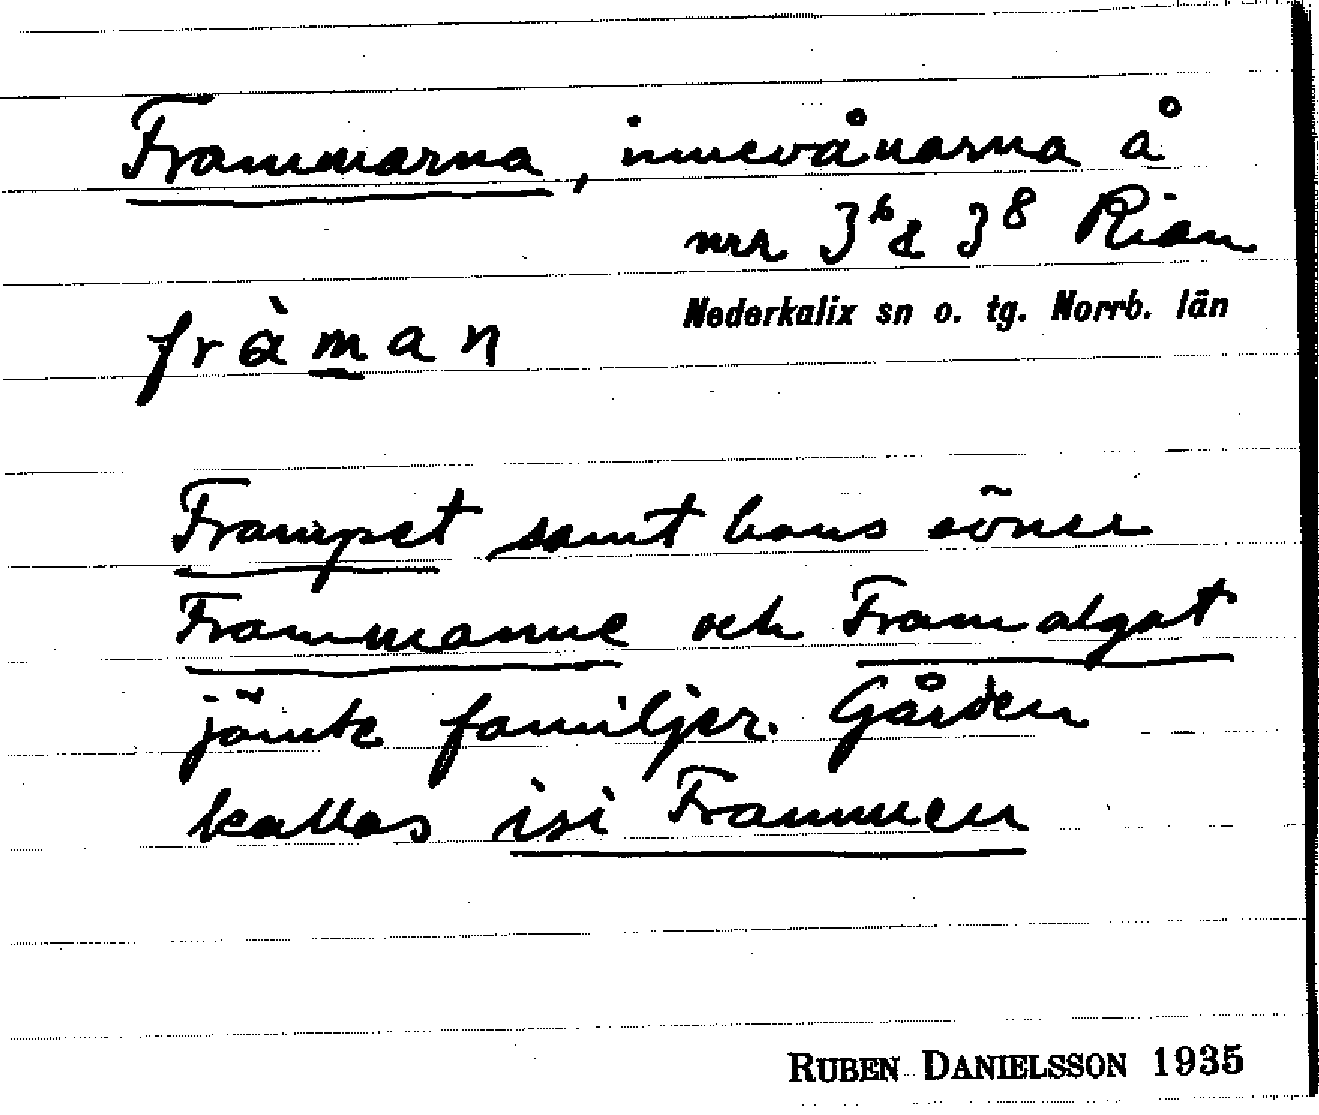 Frammarna, innevånarna å
nrr 3⁶ & 3⁸ Rian
Nederkalix sn o. tg. Norrb. län
fràman
Frampet samt hans söner
Frammanne och Framalgot
jämte familjer. Gården
kallas isi Frammen
RUBEN DANIELSSON 1935